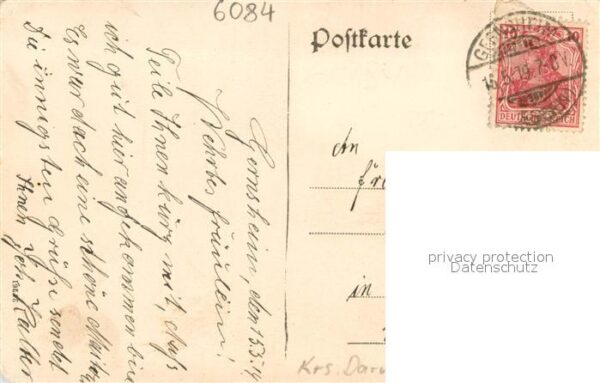 6084
Postkarte
GERNSHEIM
15.5.19. 7-8 V
DEUTSCHES REICH
Gernsheim, den 15.5.19
Wehrtes Fräulein!
Teile Ihnen kurz mit, daß
ich gut hier angekommen bin
Es war doch eine schöne
Die innigsten Grüße sendet
Ihnen
An
in
privacy protection
Datenschutz
Krs. Darm